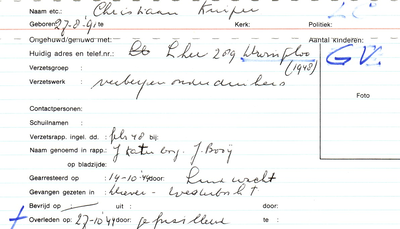 Naam etc.: Christiaan Kuiper
Geboren 27-8-'91 te Kerk: Politiek:
Ongehuwd/gehuwd met: Aantal kinderen:
Huidig adres en telef.nr.: Lhee 289 Dwingeloo GV
Verzetsgroep : (1948)
Verzetswerk : verbergen onderduikers
Foto
Contactpersonen:
Schuilnaam :
Verzetsrapp. ingel. dd. : '48 bij:
Naam genoemd in rapp.: J. J. Booij
op bladzijde:
Gearresteerd op : 14-10-'44 door: Landwacht
Gevangen gezeten in : - Westerbork
Bevrijd op : uit : door:
Overleden op: 27-10'44 door: gefusilleerd te :